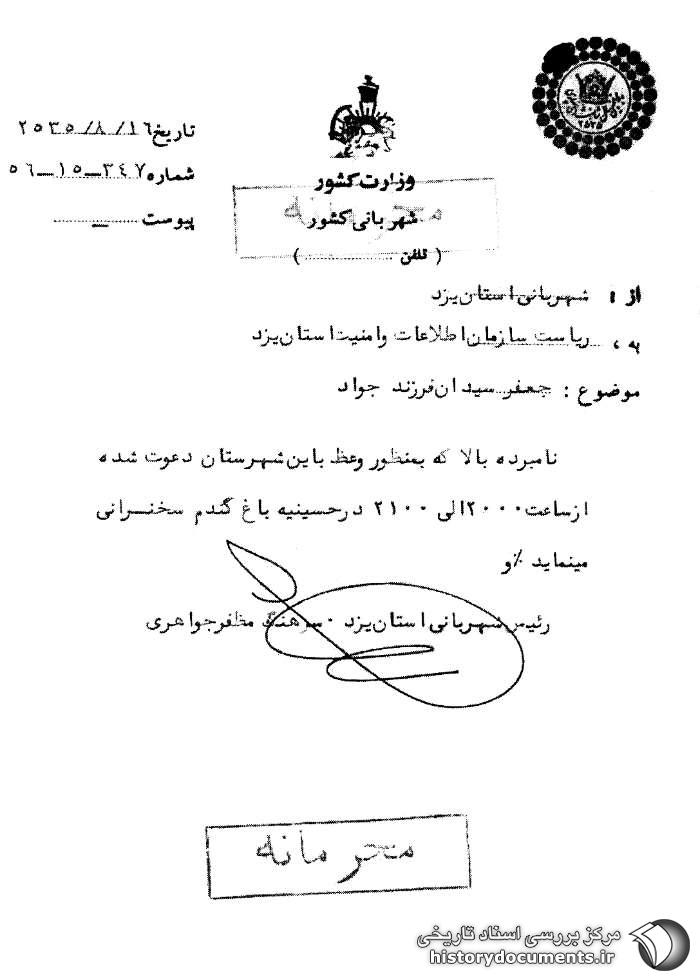 تاریخ ۲۵۳۵/۸/۱٦
شماره ۳٤۷-۱۵-۵٦
پیوست
وزارت کشور
شهربانی کشور
محرمانه
( تلفن )
از : شهربانی استان یزد
به ، ریاست سازمان اطلاعات وامنیت استان یزد
موضوع : جعفر سیدان فرزند جواد
نامبرده بالا که بمنظور وعظ باین شهرستان دعوت شده
ازساعت ۲۰۰۰ الی ۲۱۰۰ درحسینیه باغ گندم سخنرانی
مینماید ٪و
رئیس شهربانی استان یزد ۰ سرهنگ مظفرجواهری
محرمانه
مرکز بررسی اسناد تاریخی
historydocuments.ir